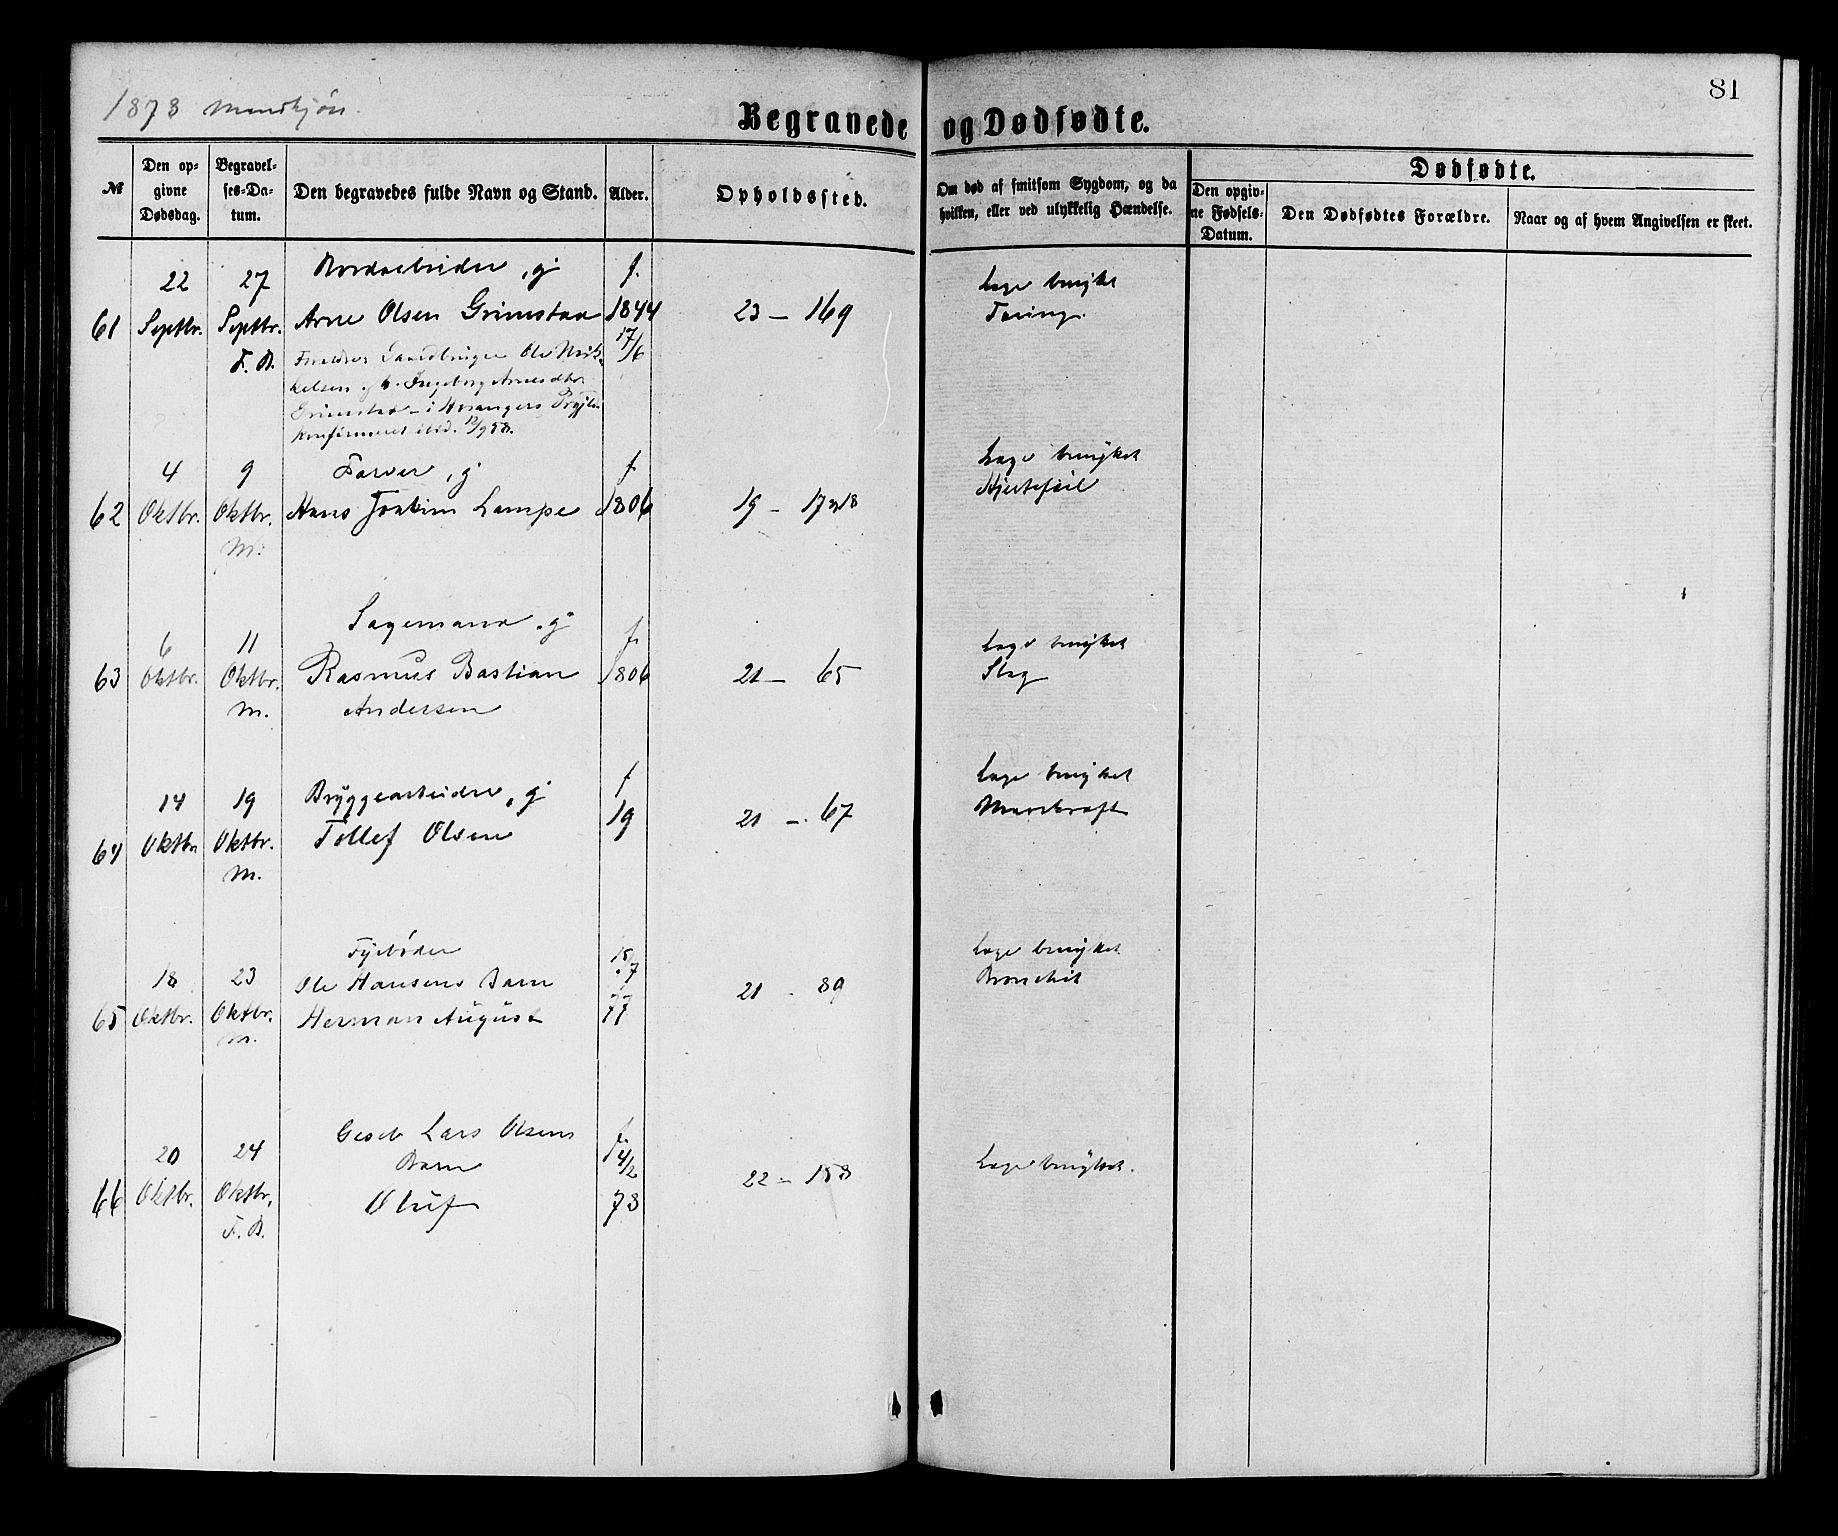 1878 Mandkjøn.
81
Begravede og Dødfødte.
№
Den op-
givne
Dødsdag.
Begravel-
ses-Da-
tum.
Den begravedes fulde Navn og Stand.
Alder.
Opholdssted.
Om død af smitsom Sygdom, og da
hvilken, eller ved ulykkelig Hændelse.
Dødfødte.
Den opgiv-
ne Fødsels-
Datum.
Den Dødfødtes Forældre.
Naar og af hvem Angivelsen er skeet.
61
22
Septbr.
27
Septbr.
F. B.
g
Arne Olsen Grimstad
Ole Mik-
kelsen og h. Ingeborg Arnesdtr
Grimstad - i
konfirmeret ibid.
f.
1844
17/6
23 - 169
Læge benyttet
Tæring.
62
4
Oktbr.
9
Oktbr.
M.
Farver, g
Hans Joakim Lampe
f.
1806
19 - 17
Læge benyttet
Hjertefeil
63
6
Oktbr.
11
Oktbr.
M.
Sagemand, g
Rasmus Bastian
Andersen
f.
1806
21 - 65
Læge benyttet
Slag
64
14
Oktbr
19
Oktbr.
M.
Bryggearbeider, g
Tollef Olsen
f
19
21 - 67
Læge benyttet
65
18
Oktbr.
23
Oktbr.
M.
Fyrbøder
Ole Hansens Barn
Herman August
77
21 - 89
Læge benyttet
Bronchit
66
20
Oktbr.
24
Oktbr.
F. B.
Lars Olsens
Barn
Oluf
f.
78
22 - 158
Læge benyttet.